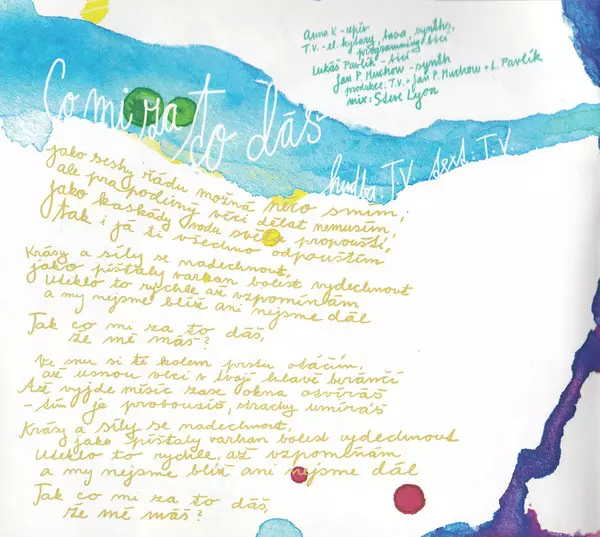 Anna K - zpěv
T.V. - el. kytary, basa, synths,
programming bicí
Lukáš Pavlík - bicí
Jan P. Muchow - synth
produkce: T.V. + Jan P. Muchow + L. Pavlík
mix: Steve Lyon
Co mi za to dáš
hudba: T.V. text: T.V.
jako sestry řádu možná něco smím,
ale prapodivný věci dělat nemusím,
jako kaskády vodu světlo propouští,
tak i já ti všechno odpouštím
Krásy a síly se nadechnout,
jako píšťaly varhan bolest vydechnout
Uteklo to rychle až vzpomínám
a my nejsme blíž ani nejsme dál
Tak co mi za to dáš,
že mě máš?
Ve snu si tě kolem prstu otáčím,
až usnou vlci v tvojí hlavě beránčí
Až vyjde měsíc zase okna otvíráš
- tím já probouzíš, strachy umíráš
Krásy a síly se nadechnout,
jako píšťaly varhan bolest vydechnout
Uteklo to rychle, až vzpomínám
a my nejsme blíž ani nejsme dál
Tak co mi za to dáš,
že mě máš?